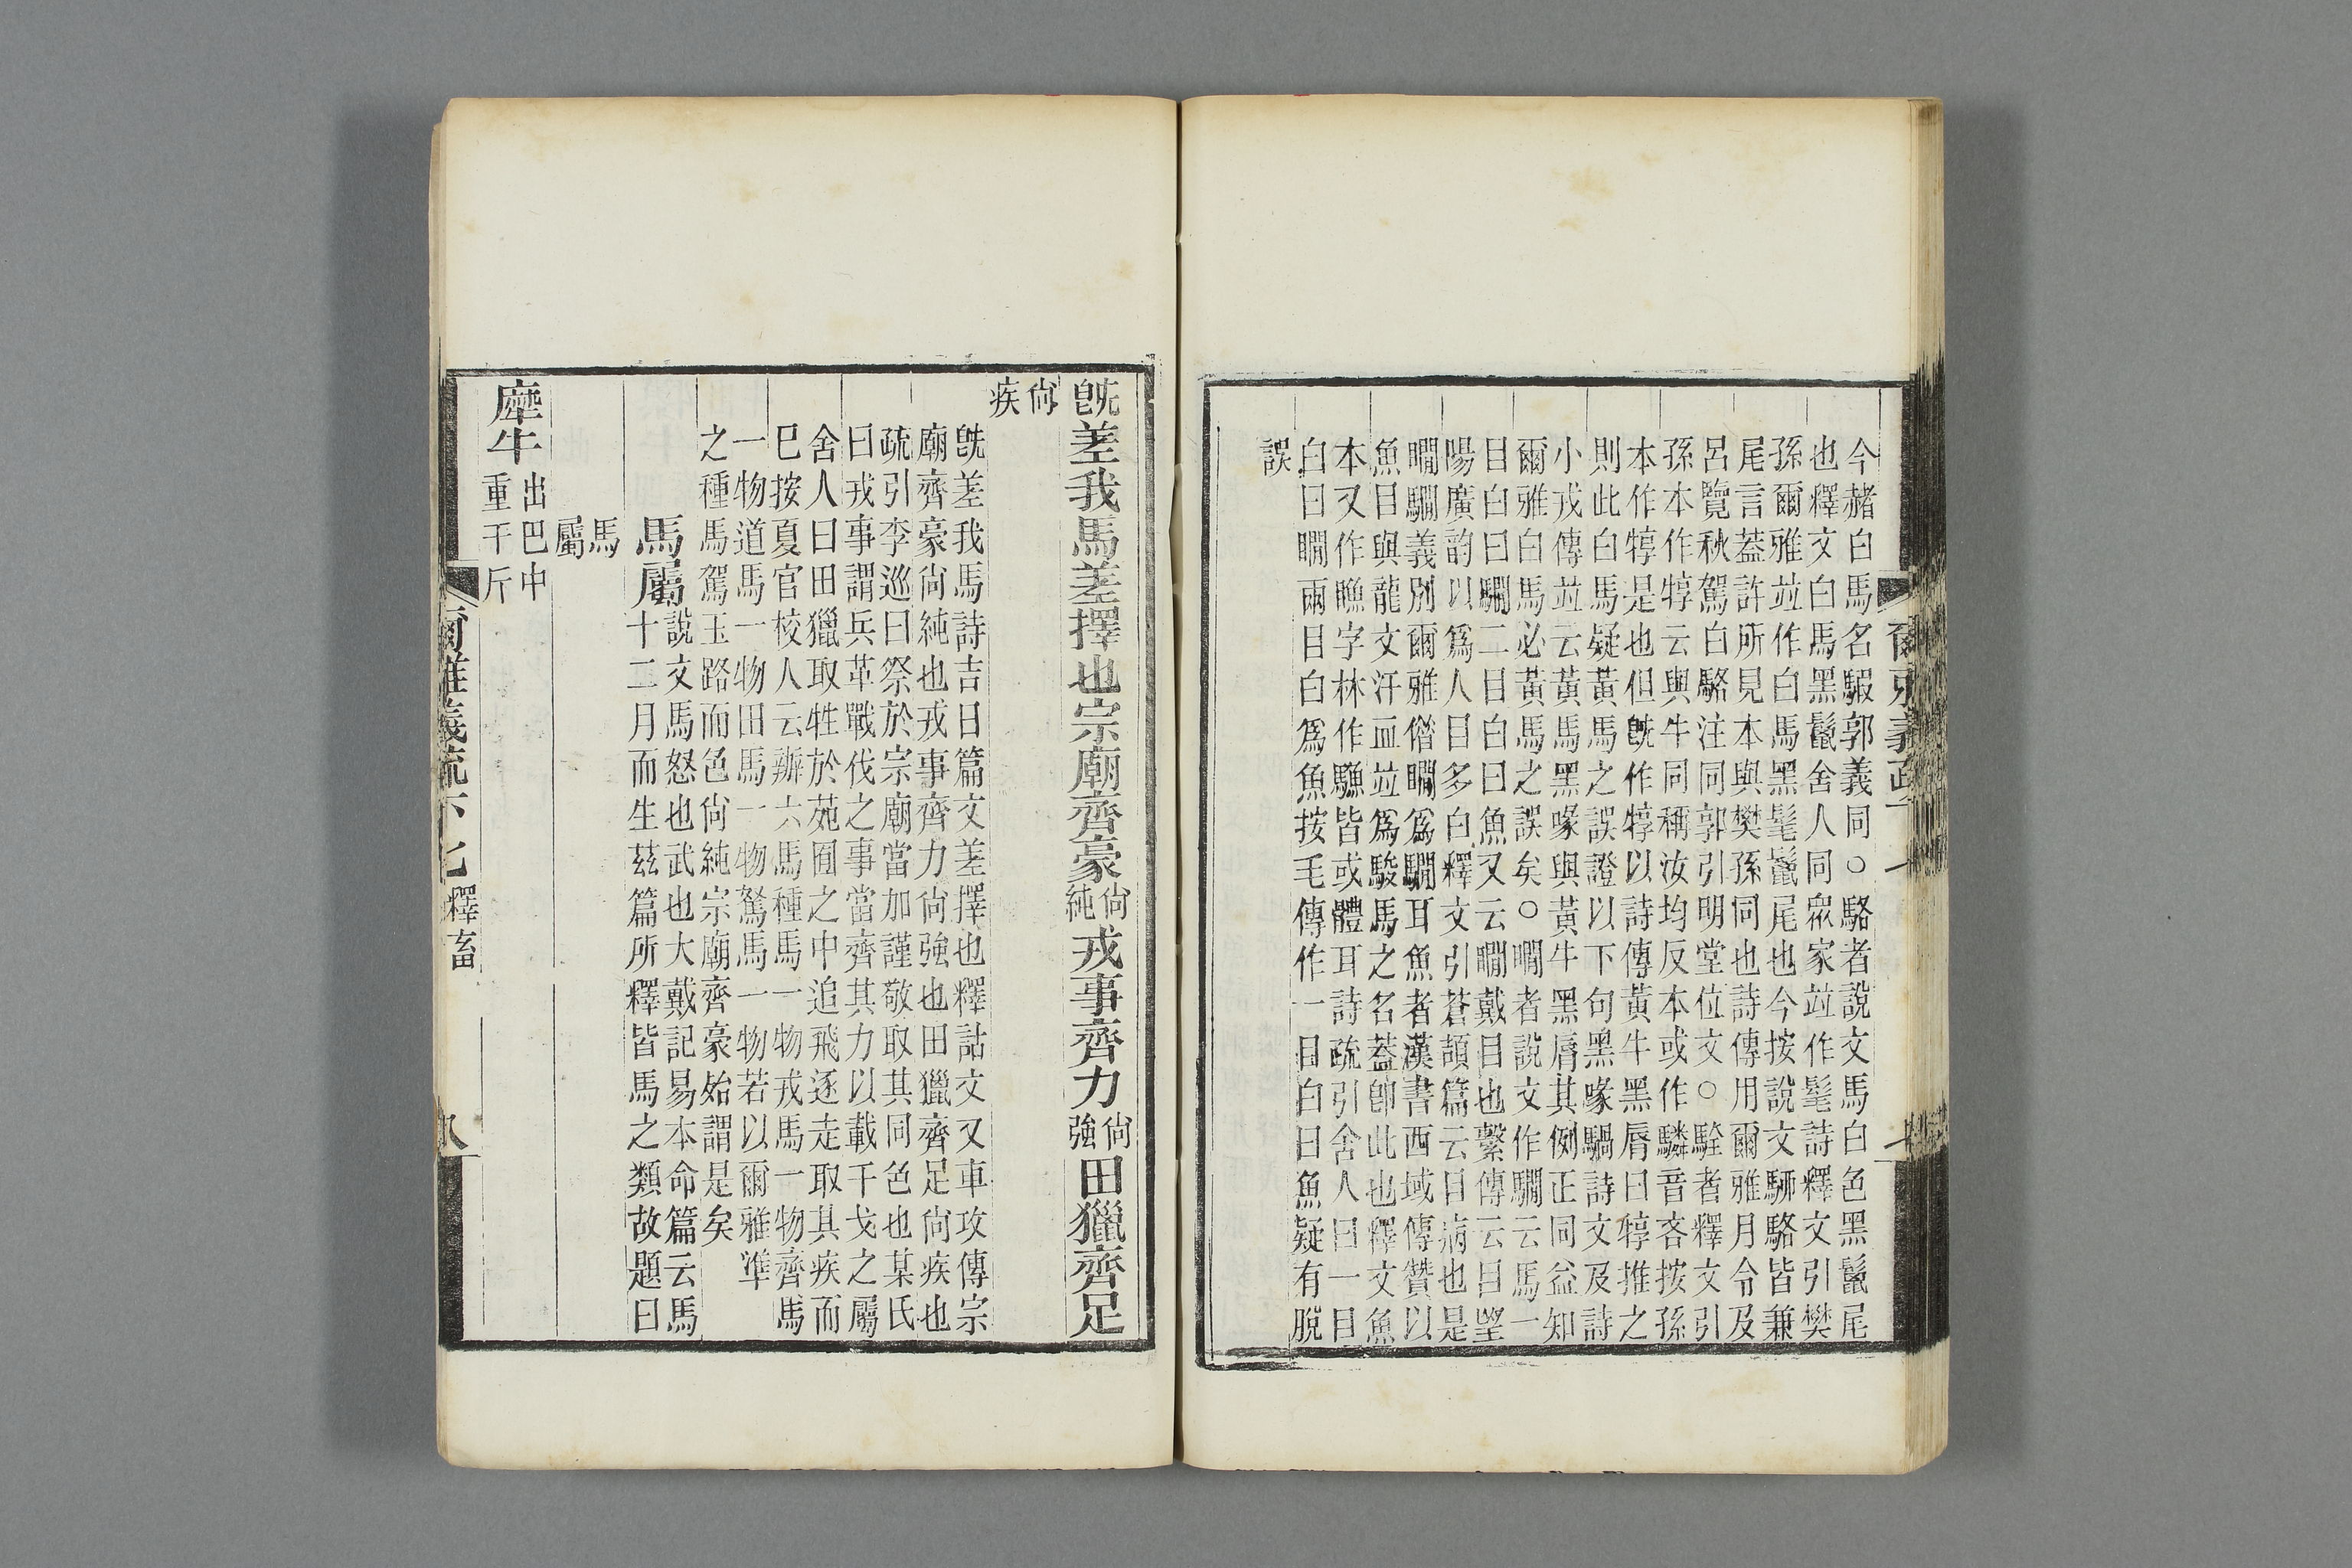 今赭白馬名騢郭義同○駱者說文馬白色黑鬣尾
也釋文白馬黑鬣舍人同眾家竝作髦詩釋文引樊
孫爾雅竝作白馬黑髦鬣尾也今按說文駵駱皆兼
尾言蓋許所見本與樊孫同也詩傳用爾雅月令及
呂覽秋駕白駱注同郭引明堂位文○駩者釋文引
孫本作犉云與牛同稱汝均反本或作驎音吝按孫
本作犉是也但旣作犉以詩傳黃牛黑脣曰犉推之
則此白馬疑黃馬之誤證以下句黑喙騧詩文及詩
小戎傳竝云黃馬黑喙與黃牛黑脣其例正同益知
爾雅白馬必黃馬之誤矣○瞷者說文作騆云馬一
目白曰騆二目白曰魚又云瞷戴目也繫傳云目望
陽廣韵以爲人目多白釋文引蒼頡篇云目病也是
瞷騆義別爾雅僭瞷爲騆耳魚者漢書西域傳贊以
魚目與龍文汗血竝爲駿馬之名蓋卽此也釋文魚
本又作䱷字林作䮷皆或體耳詩疏引舍人曰一目
白曰瞷兩目白爲魚按毛傳作一目白曰魚疑有脫
誤
爾雅義疏
旣差我馬差擇也宗廟齊豪尙純戎事齊力尙強田獵齊足
尙疾
旣差我馬詩吉日篇文差擇也釋詁文又車攻傳宗
廟齊豪尙純也戎事齊力尙強也田獵齊足尙疾也
疏引李巡曰祭於宗廟當加謹敬取其同色也某氏
曰戎事謂兵革戰伐之事當齊其力以載干戈之屬
舍人曰田獵取牲於苑囿之中追飛逐走取其疾而
巳按夏官校人云辨六馬種馬一物戎馬一物齊馬
一物道馬一物田馬一物駑馬一物若以爾雅準
之種馬駕玉路而色尙純宗廟齊豪始謂是矣
馬屬說文馬怒也武也大戴記易本命篇云馬
十二月而生茲篇所釋皆馬之類故題曰
馬
屬
犘牛出巴中
重千斤
爾雅義疏下七 釋畜 八